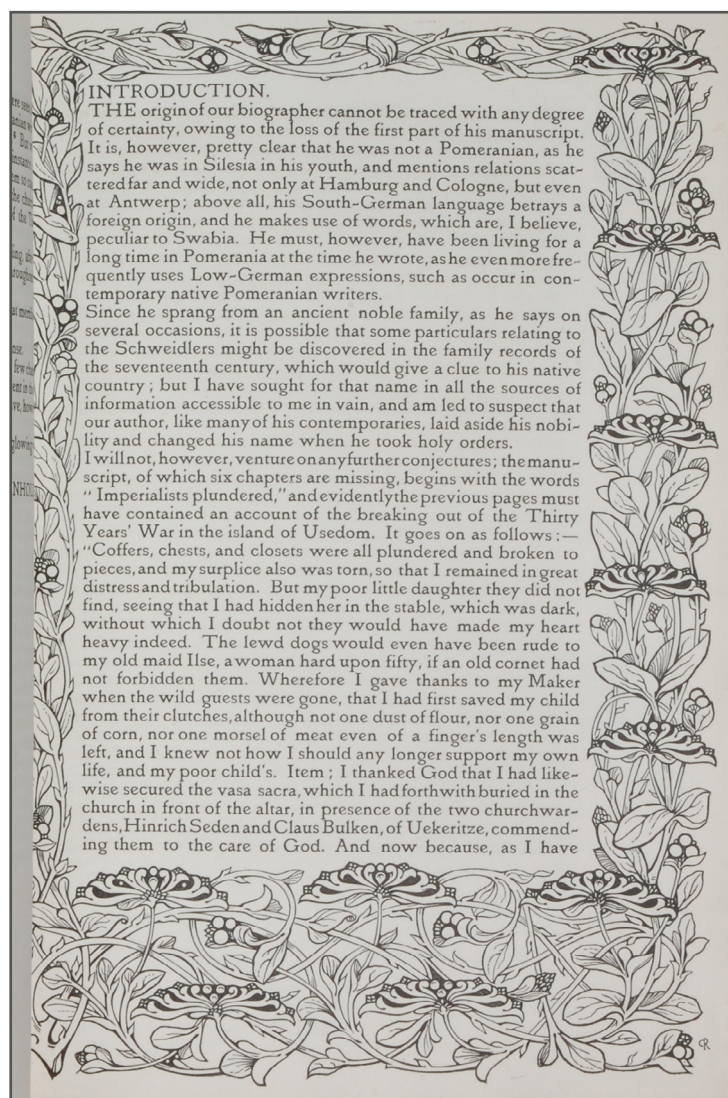 INTRODUCTION.
THE origin of our biographer cannot be traced with any degree
of certainty, owing to the loss of the first part of his manuscript.
It is, however, pretty clear that he was not a Pomeranian, as he
says he was in Silesia in his youth, and mentions relations scat-
tered far and wide, not only at Hamburg and Cologne, but even
at Antwerp; above all, his South-German language betrays a
foreign origin, and he makes use of words, which are, I believe,
peculiar to Swabia. He must, however, have been living for a
long time in Pomerania at the time he wrote, as he even more fre-
quently uses Low-German expressions, such as occur in con-
temporary native Pomeranian writers.
Since he sprang from an ancient noble family, as he says on
several occasions, it is possible that some particulars relating to
the Schweidlers might be discovered in the family records of
the seventeenth century, which would give a clue to his native
country; but I have sought for that name in all the sources of
information accessible to me in vain, and am led to suspect that
our author, like many of his contemporaries, laid aside his nobi-
lity and changed his name when he took holy orders.
I will not, however, venture on any further conjectures; the manu-
script, of which six chapters are missing, begins with the words
"Imperialists plundered," and evidently the previous pages must
have contained an account of the breaking out of the Thirty
Years' War in the island of Usedom. It goes on as follows:—
"Coffers, chests, and closets were all plundered and broken to
pieces, and my surplice also was torn, so that I remained in great
distress and tribulation. But my poor little daughter they did not
find, seeing that I had hidden her in the stable, which was dark,
without which I doubt not they would have made my heart
heavy indeed. The lewd dogs would even have been rude to
my old maid Ilse, a woman hard upon fifty, if an old cornet had
not forbidden them. Wherefore I gave thanks to my Maker
when the wild guests were gone, that I had first saved my child
from their clutches, although not one dust of flour, nor one grain
of corn, nor one morsel of meat even of a finger's length was
left, and I knew not how I should any longer support my own
life, and my poor child's. Item; I thanked God that I had like-
wise secured the vasa sacra, which I had forthwith buried in the
church in front of the altar, in presence of the two churchwar-
dens, Hinrich Seden and Claus Bulken, of Uekeritze, commend-
ing them to the care of God. And now because, as I have
CR